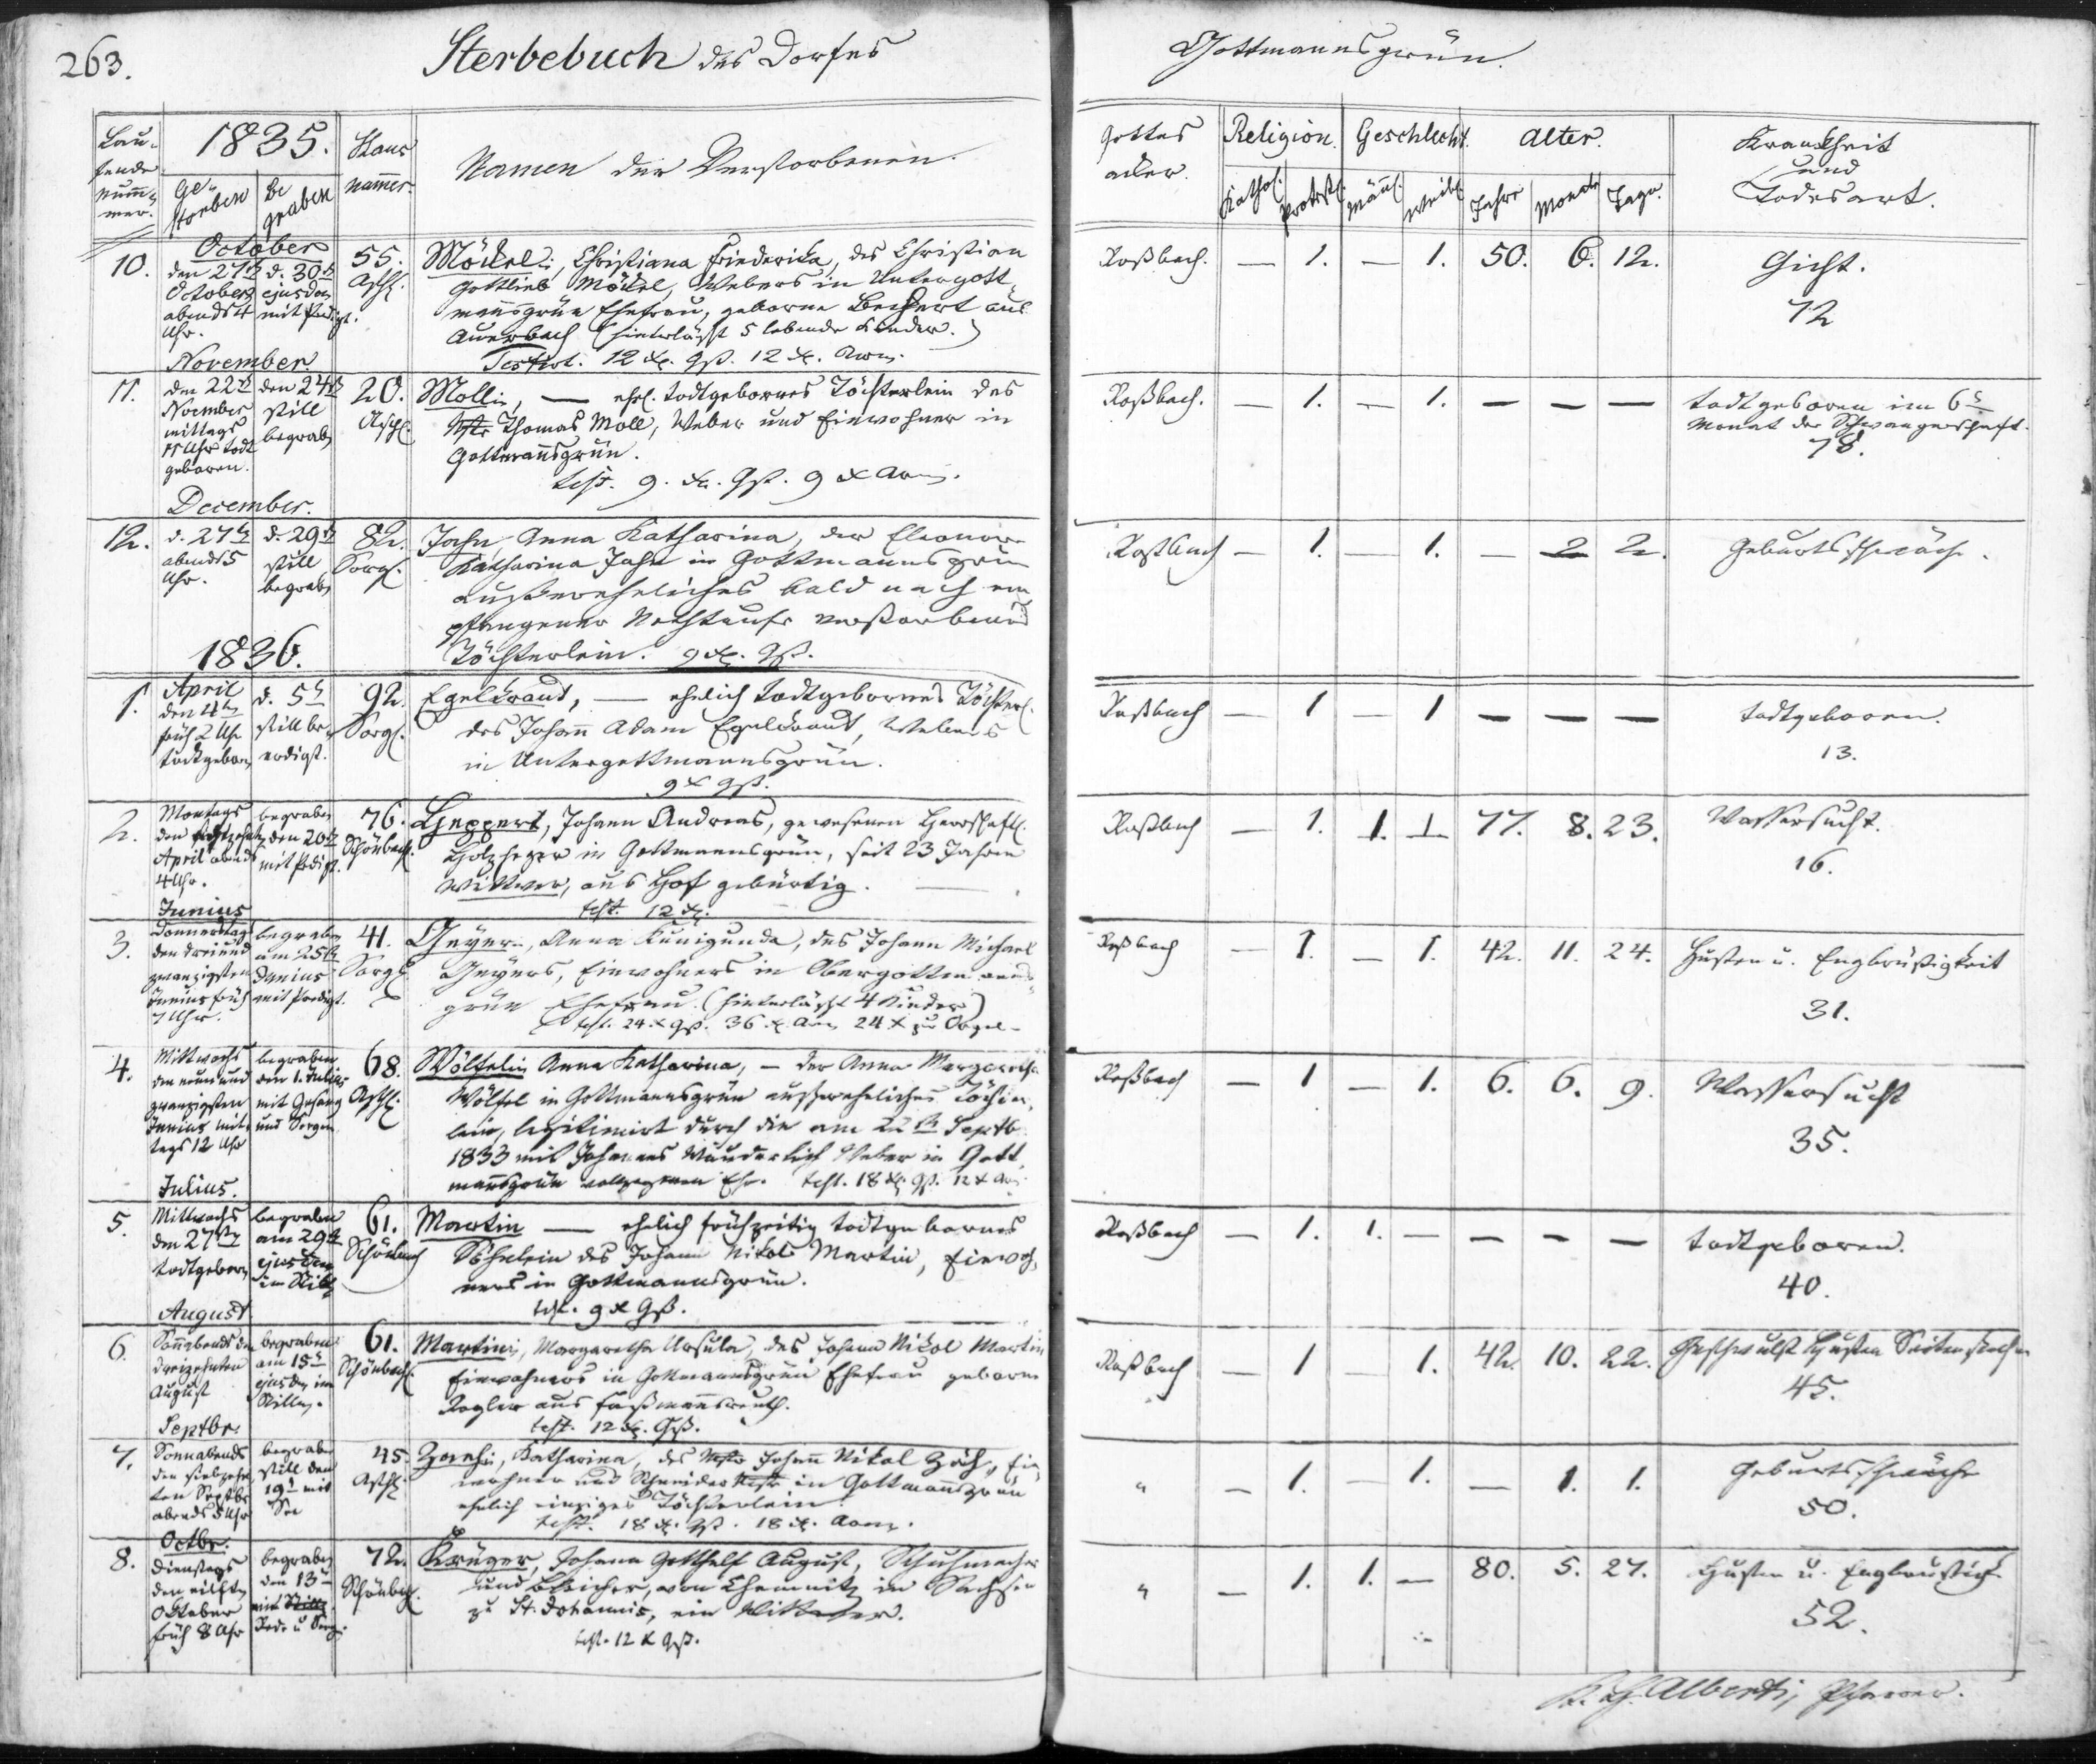 263.
Sterbebuch des Dorfes
Gottmannsgrün.
Lau-
fende
Num̄-
mer.
1835.
Ge-
storben
Be
graben
Haus
nam̄er.
Namen der Verstorbenen.
Gottes
acker.
Religion.
Kathol.
Protest.
Geschlecht.
Männl.
Weibl.
Alter.
Jahre
Monate
Tage.
Krankheit
und
Todesart.
October
10.
den 27ten
October
abends 4
Uhr.
d. 30ten
ejusdem
mit Predigt.
55.
Asch.
Möckel, Christiana Friederika, des Christian
Gottlieb Möckel, Webers in Untergott-
mannsgrün Ehefrau, geborne Bechert aus
Auerbach (hinterläßt 5 lebende Kinder.)
Testirt. 12 x. Gß. 12 x. Arm.
Roßbach. — 1. — 1. 50. 6. 12. Gicht.
72
November.
11.
den 22ten
November
mittags
11 Uhr todt
geboren.
den 24ten
still
begraben
20.
Asch.
Moll, — ehel. todtgebornes Töchterlein des
Mstr Thomas Moll, Weber und Einwohner in
Gottmannsgrün.
test. 9. x. Gß. 9 x Arm.
Roßbach. — 1. — 1. — — — todtgeboren im 6n
Monat der Schwangerschaft.
78.
December.
12.
d. 27ten
abends 5
Uhr.
d. 29ten
still
begraben
82.
Sorg.
Jahn Anna Katharina, der Eleonore
Katharina Jahn in Gottmannsgrün
außereheliches bald nach em
pfangener Nothtaufe verstorbenes
Töchterlein. 9 x. Gß.
Roßbach — 1. — 1. — 2 2. Geburtsschwäche.
1836.
1.
April
den 4ten
früh 2 Uhr
todtgeboren
d. 5n
still be-
erdigt.
92.
Sorg.
Egelkraut, — ehelich todtgebornes Töchterl.
des Johann Adam Egelkraut, Webers
in Untergottmannsgrün.
9 x Gß.
Roßbach — 1 — 1 — — — todtgeboren.
13.
2.
Montags
den
April abends
4 Uhr.
begraben
den 20ten
mit Predigt.
76.
Schönbach.
Geppert, Johann Andreas, gewesener Herrschaftl.
Holzheger in Gottmannsgrün, seit 23 Jahren
Wittwer, aus Hof gebürtig.
test. 12 x.
Roßbach — 1. 1. 1 77. 8. 23. Wassersucht.
16.
Junius
3.
Donnerstags
den drei und
zwanzigsten
Junius früh
7 Uhr.
begraben
am 25ten
Junius
mit Predigt.
41.
Sorg
Geyer, Anna Kunigunda, des Johann Michael
Geyers, Einwohners in Obergottmanns-
grün Ehefrau. (hinterläßt 4 Kinder)
test. 24 x Gß. 36 x. Arm 24 x zur Orgel
Roßbach — 1. — 1. 42. 11. 24. Husten u. Engbrüstigkeit
31.
4.
Mittwochs
den neun und
zwanzigsten
Junius mit-
tags 12 Uhr
begraben
den 1. Julius
mit Gesang
und Segen
68.
Asch.
Wölfel, Anna Katharina, — der Anna Margaretha
Wölfel in Gottmannsgrün außereheliches Töchter-
lein, legitimirt durch die am 22ten Septb
1833 mit Johannes Wunderlich Weber in Gott
mannsgrün vollzogenen Ehe. test. 18 x. Gß. 12 x Arm
Roßbach — 1 — 1. 6. 6. 9. Wassersucht
35.
Julius.
5.
Mittwochs
den 27ten
todtgeboren
begraben
am 29ten
ejusdem
im Stillen
61.
Schönbach
Martin — ehelich frühzeitig todtgebornes
Söhnlein des Johann Nikol Martin, Einwoh-
ners in Gottmannsgrün.
test. 9 x Gß.
Roßbach — 1. 1. — — — — todtgeboren.
40.
August
6.
Sonnabends den
dreizehnten
August
begraben
am 15n
ejusdem im
Stillen.
61.
Schönbach.
Martin, Margaretha Ursula, des Johann Nikol Martin
Einwohners in Gottmannsgrün Ehefrau geborne
Rogler aus Faßmannsreuth.
test. 12 x. Gß.
Roßbach — 1 — 1. 42. 10. 22. Geschwulst Husten Seitenstechen
45.
Septbr.
7.
Sonnabends
den siebzehn
ten Septbr
abends 5 Uhr
begraben
still den
19n mit
45.
Asch
Katharina, des Mstr Johann Nikol Ein
wohner und Schneider Mstr in Gottmannsgrün
ehelich einziges Töchterlein.
test. 18 x. Gß. 18 x. Arm.
" — 1. — 1. — 1. 1. Geburtsschwäche
50.
Octbr.
8.
Dienstags
den eilften
October
früh 8 Uhr
begraben
den 13n
mit
Rede u Seg.
72.
Schönbach.
Krüger, Johann Gotthelf August, Schuhmacher
und Bleicher, von Chemnitz in Sachsen
zu St. Johannis, ein Wittwer.
test. 12 x Gß.
" — 1. 1. — 80. 5. 27. Husten u. Engbrüstigk.
52.
Alberti, Pfarrer.